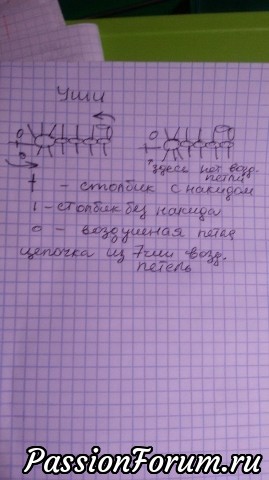 уши
здесь нет возд.
петли
† - столбик с накидом
ı - столбик без накида
о - воздушная петля
цепочка из 7ми возд.
петель
PassionForum.ru